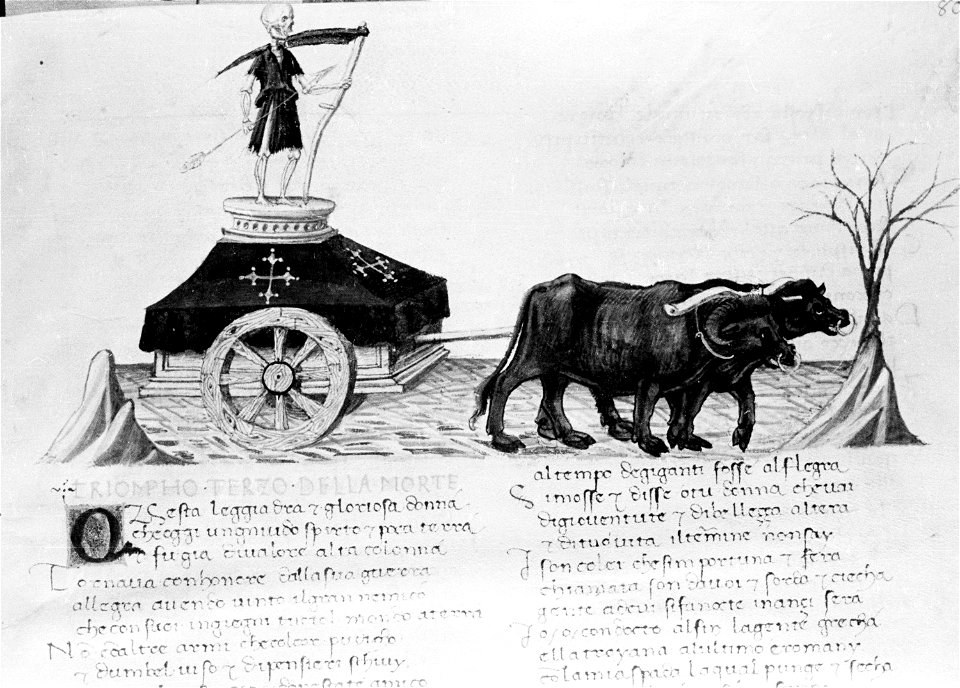 80
TRIOMPHO · TERZO · DELLA MORTE
QVesta leggiadra & gloriosa donna
che oggi u ngnivdo spirto & pocha terra
& fu gia di valore alta colonna
Tornaua con honore dalla sua guerra
allegra auendo uinto il gran nemico
che con suoi ingiegni tutto il mondo aterra
No co altre armi che col cor pudico
& dun bel uiso & di pensieri schiui
al tempo de giganti fosse al flegra
Si mosse & disse o tu donna che uai
di gioventute & di bellezza altera
& di tuo uita il termine non sai
Io son colei che si importuna & fera
chiamata son da uoi & sorda & ciecha
gente a cui si fa nocte inanzi sera
Io o condocto al fin la gente grecha
ella troyana al ultimo e romany
con la mia spada la qual punge & secha